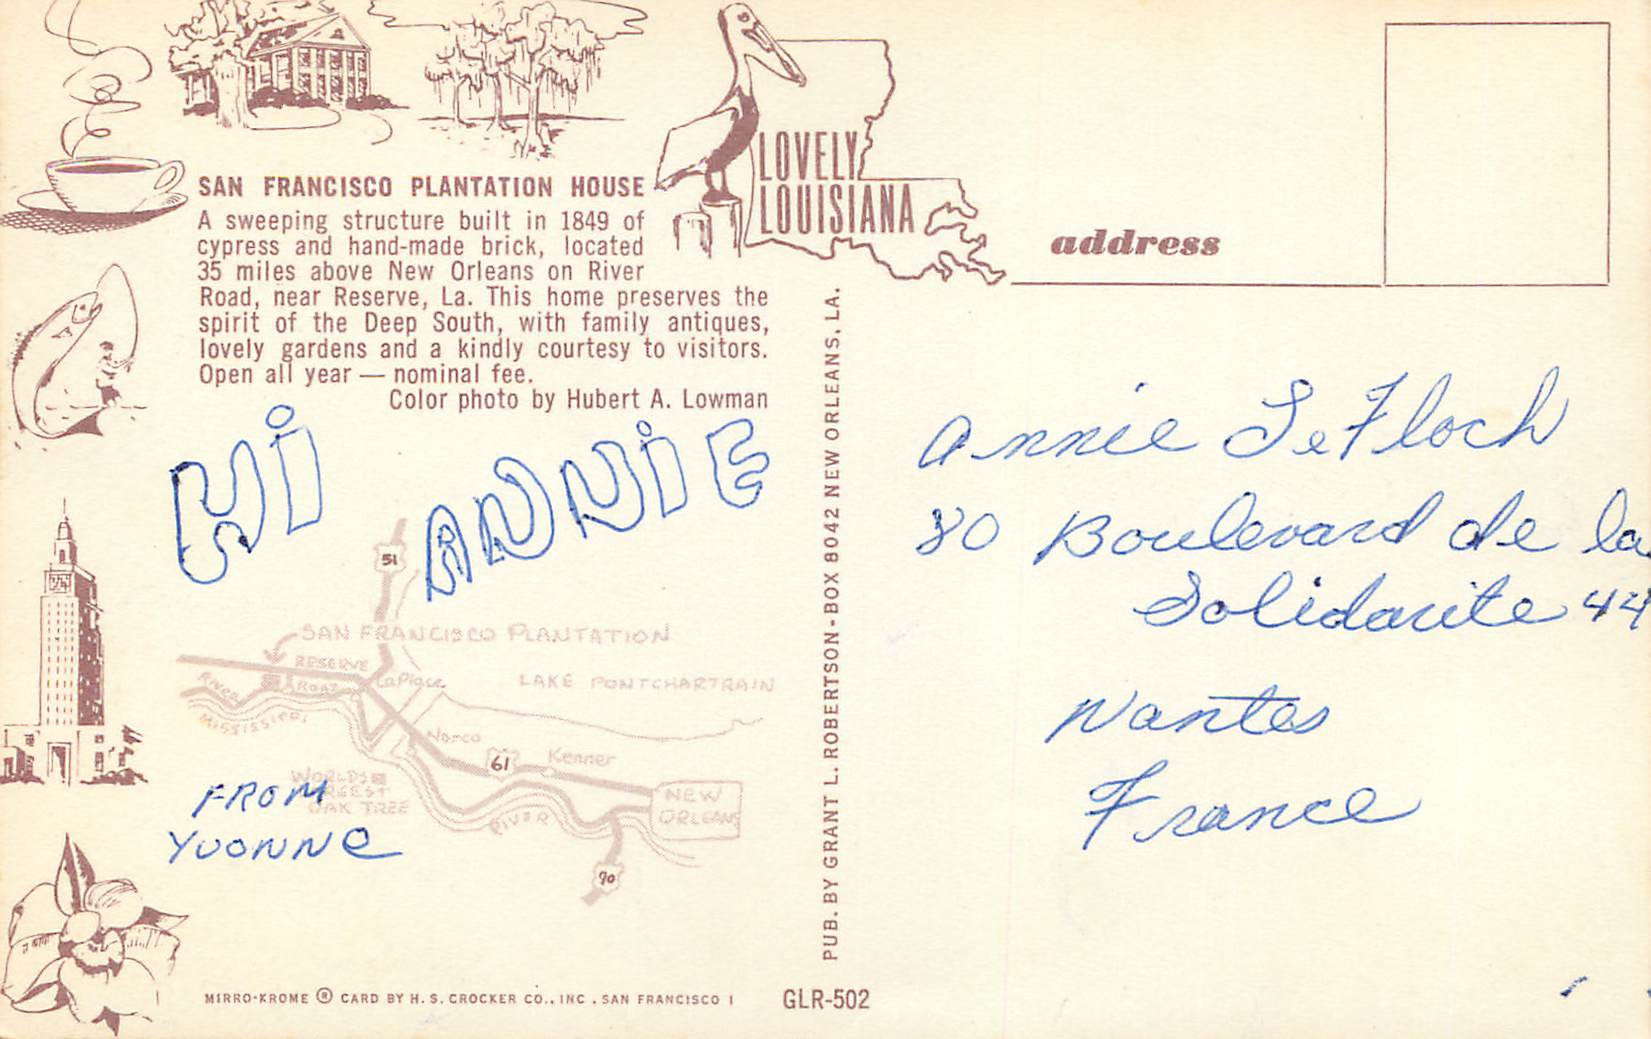 SAN FRANCISCO PLANTATION HOUSE
A sweeping structure built in 1849 of
cypress and hand-made brick, located
35 miles above New Orleans on River
Road, near Reserve, La. This home preserves the
spirit of the Deep South, with family antiques,
lovely gardens and a kindly courtesy to visitors.
Open all year — nominal fee.
Color photo by Hubert A. Lowman
LOVELY
LOUISIANA
address
HI ANNIE
51
SAN FRANCISCO PLANTATION
RESERVE
RIVER ROAD
LaPlace
LAKE PONTCHARTRAIN
MISSISSIPPI
Norco
61
Kenner
WORLDS
OAK TREE
NEW
ORLEANS
RIVER
90
FROM
YVONNE
PUB. BY GRANT L. ROBERTSON - BOX 8042 NEW ORLEANS, LA.
Annie Le Floch
80 Boulevard de la
Solidarite 44
Nantes
France
MIRRO-KROME ® CARD BY H. S. CROCKER CO., INC., SAN FRANCISCO 1
GLR-502